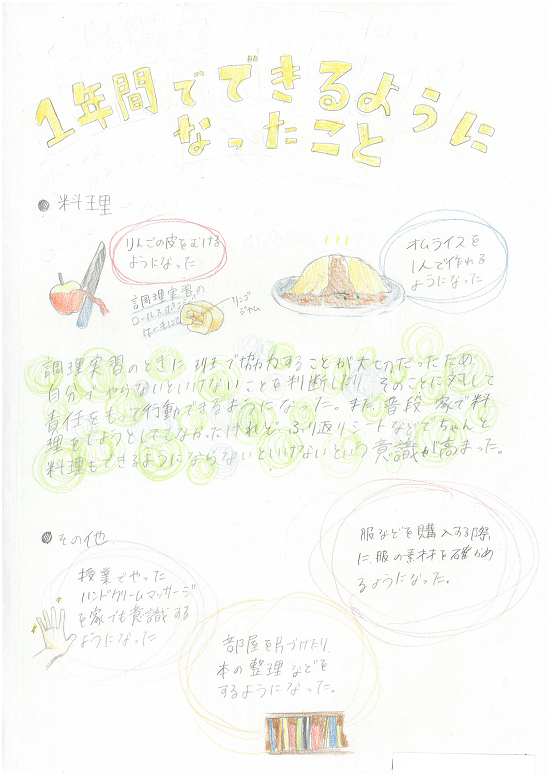 1年間でできるように
なったこと
●料理
りんごの皮をむける
ようになった
オムライスを
1人で作れる
ようになった
調理実習の
リンゴ
ジャム
調理実習のときに班で協力することが大切だったため、
自分でやらないといけないことを判断したり、そのことに対して
責任をもって行動できるようになった。また、普段家で料
理をしようとしてもなかったけれど、ふり返りシートなどでちゃんと
料理もできるようにならないといけないという意識が高まった。
●その他
服などを購入する際
に服の素材を確かめ
るようになった。
授業でやった
ハンドクリームマッサージ
を家でも意識する
ようになった
部屋を片づけたり
本の整理などを
するようになった。